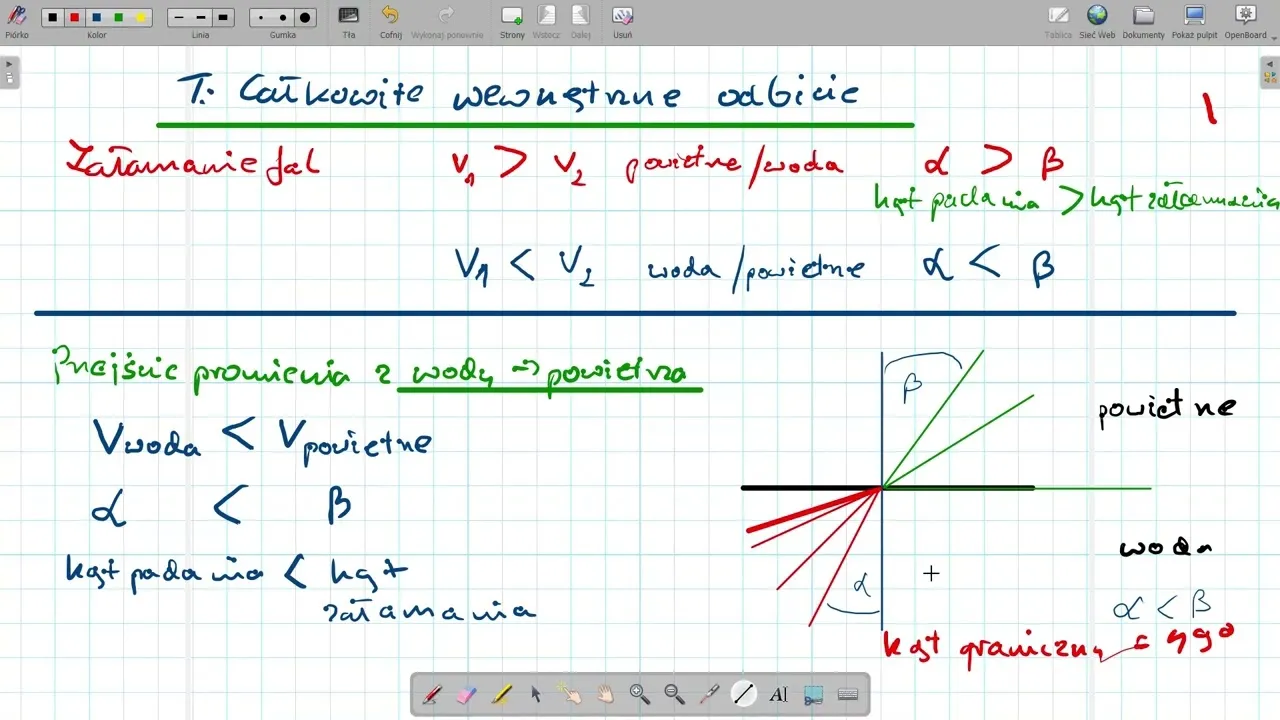 Piórko Kolor Linia Gumka Tła Cofnij Wykonaj ponownie Strony Wstecz Dalej Usuń Tablica Sieć Web Dokumenty Pokaż pulpit OpenBoard
T: Całkowite wewnętrzne odbicie
1
Załamanie fal V1 > V2 powietrze/woda α > β
kąt padania > kąt załamania
V1 < V2 woda/powietrze α < β
Przejście promienia z wody -> powietrza
β
powietrze
Vwoda < Vpowietrze
α < β
woda
kąt padania < kąt
załamania
α
α < β
kąt graniczny = 49°
AI